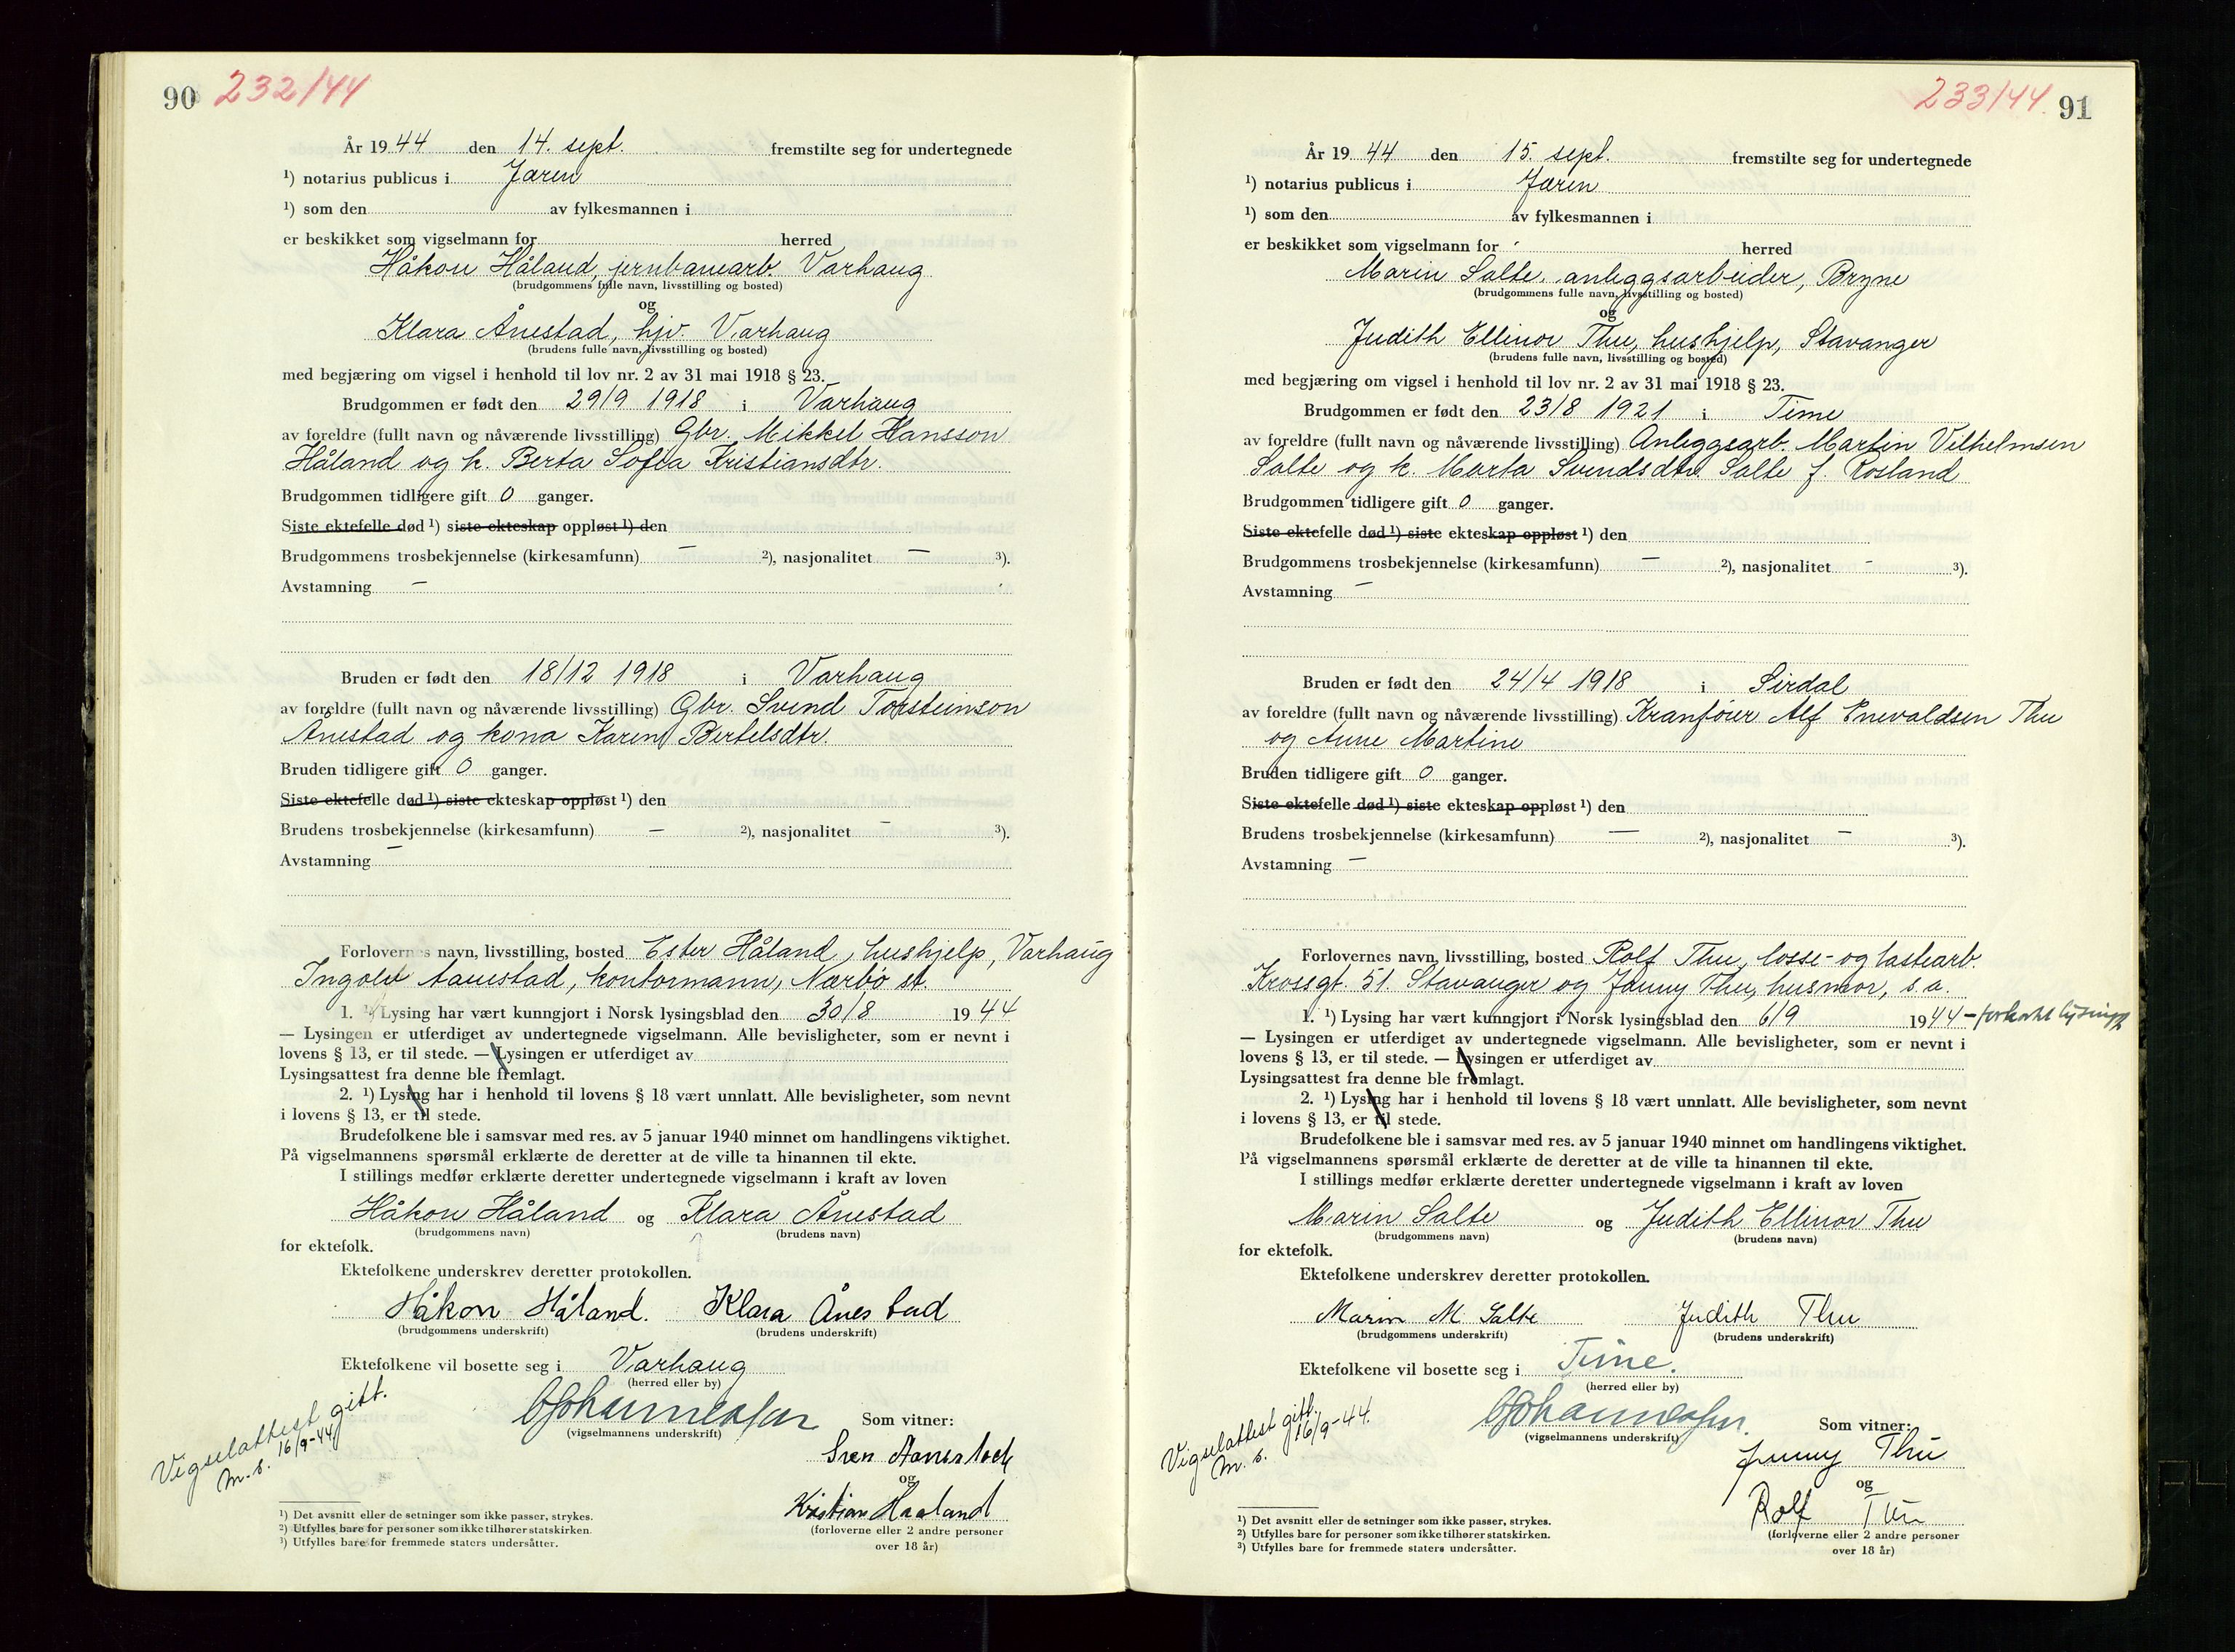 90 232/44
År 1944 den 14. sept. fremstilte seg for undertegnede
¹) notarius publicus i Jæren
¹) som den av fylkesmannen i
er beskikket som vigselmann for herred
Håkon Håland, jernbanearb. Varhaug
(brudgommens fulle navn, livsstilling og bosted)
og
Klara Ånestad, hjv. Varhaug
(brudens fulle navn, livsstilling og bosted)
med begjæring om vigsel i henhold til lov nr. 2 av 31 mai 1918 § 23.
Brudgommen er født den 29/9 1918 i Varhaug
av foreldre (fullt navn og nåværende livsstilling) Gbr. Mikkel Hansson
Håland og k. Berta Sofia Kristiansdtr.
Brudgommen tidligere gift 0 ganger.
Siste ektefelle død ¹) siste ekteskap oppløst ¹) den
Brudgommens trosbekjennelse (kirkesamfunn) — ²), nasjonalitet — ³).
Avstamning —
Bruden er født den 18/12 1918 i Varhaug
av foreldre (fullt navn og nåværende livsstilling) Gbr. Svend Torsteinson
Ånestad og kona Karen Bertelsdtr.
Bruden tidligere gift 0 ganger.
Siste ektefelle død ¹) siste ekteskap oppløst ¹) den
Brudens trosbekjennelse (kirkesamfunn) — ²), nasjonalitet — ³).
Avstamning —
Forlovernes navn, livsstilling, bosted Ester Håland, hushjelp, Varhaug
Ingolv Aanestad, kontormann, Nærbø st.
1. ¹) Lysing har vært kunngjort i Norsk lysingsblad den 30/8 1944
— Lysingen er utferdiget av undertegnede vigselmann. Alle bevisligheter, som er nevnt i
lovens § 13, er til stede. — Lysingen er utferdiget av
Lysingsattest fra denne ble fremlagt.
2. ¹) Lysing har i henhold til lovens § 18 vært unnlatt. Alle bevisligheter, som nevnt
i lovens § 13, er til stede.
Brudefolkene ble i samsvar med res. av 5 januar 1940 minnet om handlingens viktighet.
På vigselmannens spørsmål erklærte de deretter at de ville ta hinannen til ekte.
I stillings medfør erklærte deretter undertegnede vigselmann i kraft av loven
Håkon Håland og Klara Ånestad
(brudgommens navn) (brudens navn)
for ektefolk.
Ektefolkene underskrev deretter protokollen.
Håkon Håland. Klara Ånestad
(brudgommens underskrift) (brudens underskrift)
Ektefolkene vil bosette seg i Varhaug
(herred eller by)
Vigselattest gitt.
m. s. 16/9-44
Som vitner:
(vigselmannens underskrift)
og
Kristian Haaland
(forloverne eller 2 andre personer
over 18 år)
¹) Det avsnitt eller de setninger som ikke passer, strykes.
²) Utfylles bare for personer som ikke tilhører statskirken.
³) Utfylles bare for fremmede staters undersåtter.
233/44. 91
År 1944 den 15. sept. fremstilte seg for undertegnede
¹) notarius publicus i Jæren
¹) som den av fylkesmannen i
er beskikket som vigselmann for herred
Marin Salte, anleggsarbeider, Bryne
(brudgommens fulle navn, livsstilling og bosted)
og
Judith Ellinor Thu, hushjelp, Stavanger
(brudens fulle navn, livsstilling og bosted)
med begjæring om vigsel i henhold til lov nr. 2 av 31 mai 1918 § 23.
Brudgommen er født den 23/8 1921 i Time
av foreldre (fullt navn og nåværende livsstilling) Anleggsarb. Martin Vilhelmsen
Salte og k. Marta Svendsdtr. Salte f. Rosland
Brudgommen tidligere gift 0 ganger.
Siste ektefelle død ¹) siste ekteskap oppløst ¹) den
Brudgommens trosbekjennelse (kirkesamfunn) — ²), nasjonalitet - ³).
Avstamning —
Bruden er født den 24/4 1918 i Sirdal
av foreldre (fullt navn og nåværende livsstilling) Kranfører Alf Enevaldsen Thu
og Anne Martine
Bruden tidligere gift 0 ganger.
Siste ektefelle død ¹) siste ekteskap oppløst ¹) den
Brudens trosbekjennelse (kirkesamfunn) — ²), nasjonalitet — ³).
Avstamning —
Forlovernes navn, livsstilling, bosted Rolf Thu, losse- og lastearb.
Krossgt. 51. Stavanger og Jenny Thu, husmor, s.a.
1. ¹) Lysing har vært kunngjort i Norsk lysingsblad den 6/9 1944 - forkortet lysing
— Lysingen er utferdiget av undertegnede vigselmann. Alle bevisligheter, som er nevnt i
lovens § 13, er til stede. — Lysingen er utferdiget av
Lysingsattest fra denne ble fremlagt.
2. ¹) Lysing har i henhold til lovens § 18 vært unnlatt. Alle bevisligheter, som nevnt
i lovens § 13, er til stede.
Brudefolkene ble i samsvar med res. av 5 januar 1940 minnet om handlingens viktighet.
På vigselmannens spørsmål erklærte de deretter at de ville ta hinannen til ekte.
I stillings medfør erklærte deretter undertegnede vigselmann i kraft av loven
Marin Salte og Judith Ellinor Thu
(brudgommens navn) (brudens navn)
for ektefolk.
Ektefolkene underskrev deretter protokollen.
Marin M. Salte Judith Thu
(brudgommens underskrift) (brudens underskrift)
Ektefolkene vil bosette seg i Time.
(herred eller by)
Vigselattest gitt.
m. s. 16/9-44.
Som vitner:
(vigselmannens underskrift)
Jenny Thu
og
Rolf Thu
(forloverne eller 2 andre personer
over 18 år)
¹) Det avsnitt eller de setninger som ikke passer, strykes.
²) Utfylles bare for personer som ikke tilhører statskirken.
³) Utfylles bare for fremmede staters undersåtter.